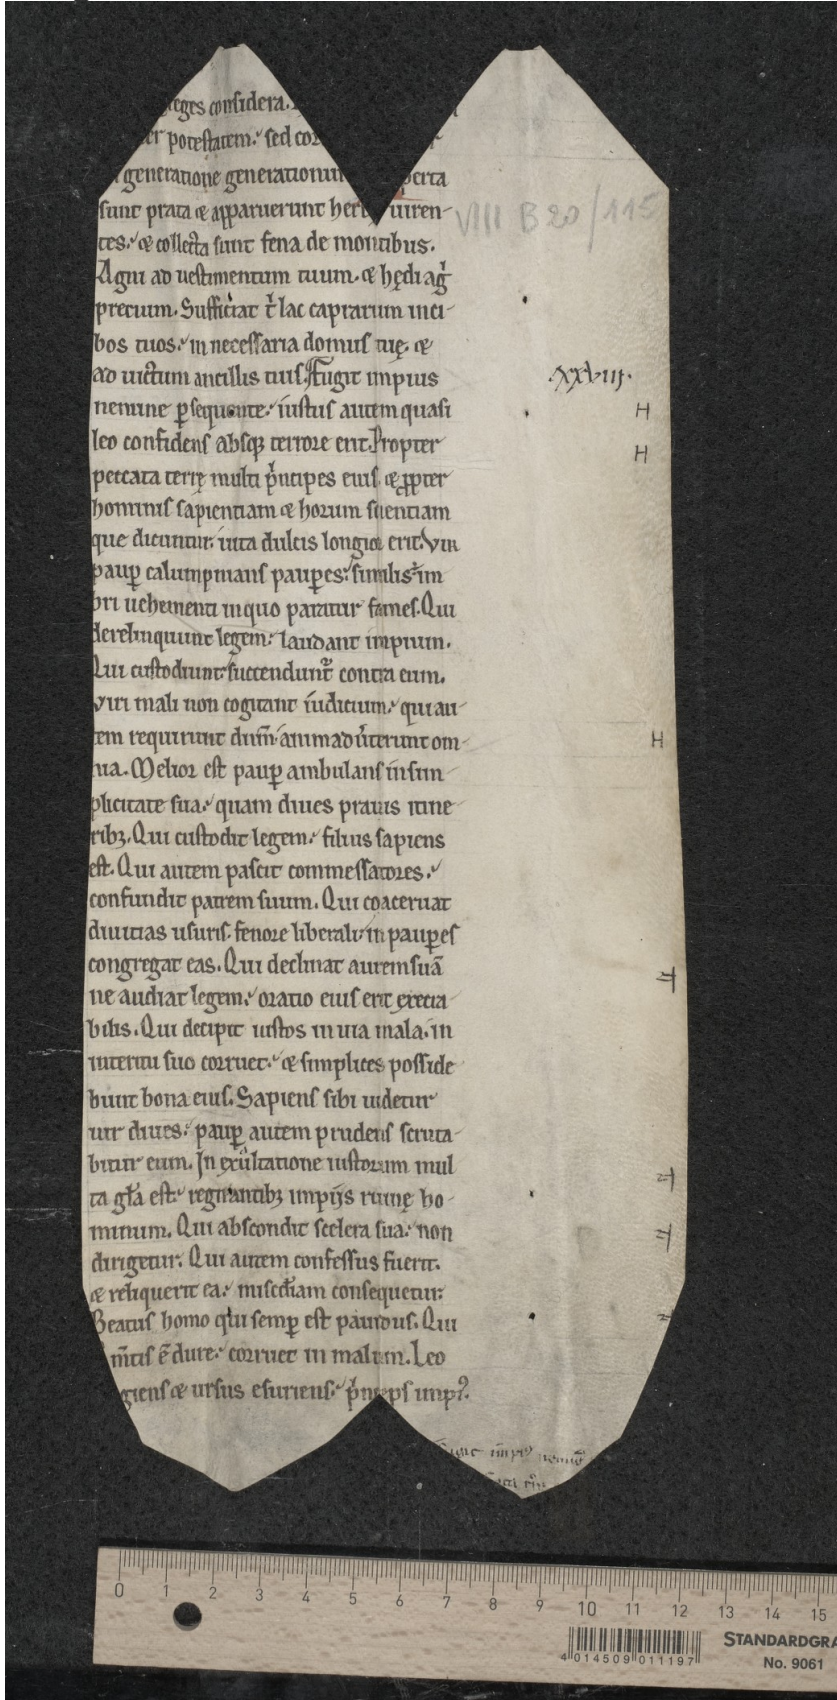 eges considera.
er potestatem. sed cor
generatione generationum perta
sunt prata & apparuerunt herb uiren-
tes. & collecta sunt fena de montibus.
Agni ad uestimentum tuum. & hędi agͥ
precium. Sufficiat tͥ lac caprarum in ci-
bos tuos. in necessaria domus tuę. &
ad uictum ancillis tuis. Fugit impius
nemine ꝑsequente. iustus autem quasi
leo confidens absqꝫ terrore erit. Propter
peccata terrę multi pͥncipes eius. & ꝓpter
hominis sapientiam & horum scientiam
que dicuntur. uita ducis longior erit. Vir
pauꝑ calumpnians pauꝑes. similis im
bri uehementi in quo paratur fames. Qui
derelinquunt legem. laudant impium.
Qui custodiunt succendunt᷑ contra eum.
Viri mali non cogitant iudicium. qui au-
tem requirunt dn̄m. animaduertunt om-
nia. Melior est pauꝑ ambulans in sim-
plicitate sua. quam diues prauis itine
ribꝫ. Qui custodit legem. filius sapiens
est. Qui autem pascit commessatores.
confundit patrem suum. Qui coaceruat
diuitias usuris. fenore liberali in pauꝑes
congregat eas. Qui declinat aurem suā
ne audiat legem. oratio eius erit execra-
bilis. Qui decipit iustos in uia mala. in
interitu suo corruet. & simplices posside-
bunt bona eius. Sapiens sibi uidetur
uir diues. pauꝑ autem prudens scruta-
bitur eum. In exultatione iustorum mul
ta gl̄a est. regnantibꝫ impijs ruinę ho-
minum. Qui abscondit scelera sua. non
dirigetur. Qui autem confessus fuerit.
& reliquerit ea. miscd̄iam consequetur.
Beatus homo qui semꝑ est pauidus. Qui
m̄tis ē dure. corruet in malum. Leo
giens & ursus esuriens. pͥnceps imp
VIII B 20/115
.XXVIII.
H
H
H
H
H
H
0 1 2 3 4 5 6 7 8 9 10 11 12 13 14 15
4 014509 011197
STANDARDGRA
No. 9061